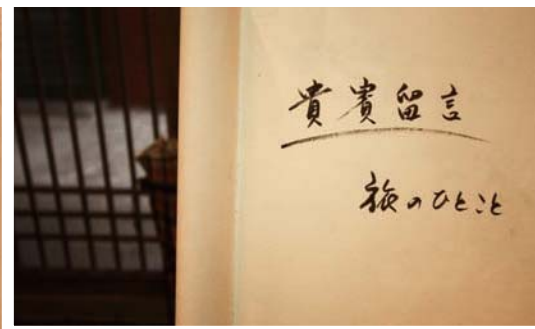 貴賓留言
旅のひとこと